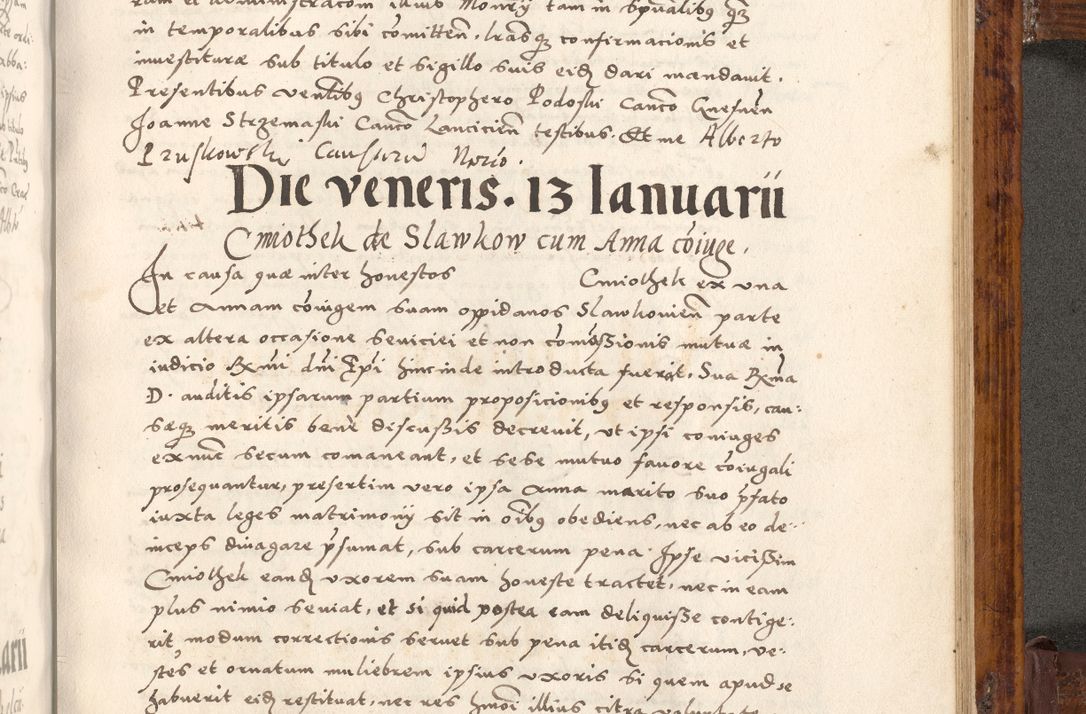 ram et administracom illius Monrÿ tam in spũalibꝫ qꝫ
in temporalibus sibi cõmitteñ. lrasqꝫ confirmacionis et
inuestituræ sub titulo et sigillo suis eidꝫ dari mandauit.
Presentibus veñtibꝫ Christophero Podoski Canco Gnesneñ
Joanne Strzemaski Canco Lancicieñ testibus. Et me Alberto
Pruskowski Causarũ Norio.
Die veneris. 13 Ianuarii
Cmiothek de Slawkow cum Anna cõiuge.
In causa quæ inter honestos Cmiothek ex vna
et Annam cõiugem suam oppidanos Slawkowieñ parte
ex altera occasione seuiciei et non cõmißionis mutuæ in
iudicio Rxmi dñi Epi hincinde introducta fuerat. Sua Rxma
D. auditis ipsarum partium proposicionibꝫ et responsis, cau-
sæqꝫ meritis bene discußis decreuit, vt ipsi coniuges
exnũc secum comaneant, et sese mutuo fauore cõiugali
prosequantur, presertim vero ipsa Anna marito suo p̃fato
iuxta leges matrimonÿ sit in oĩbꝫ obediens, nec ab eo de-
inceps diuagare p̃sumat, sub carcerum pena. Ipse vicißim
Cmiothek eandꝫ vxorem suam honeste tractet, nec in eam
plus nimio seuiat, et si quid postea eam deliquiße contige-
rit, modum correctionis seruet sub pena itidꝫ carcerum, ve-
stes et ornatum muliebrem ipsius vxoris si quem apud se
habuerit eidꝫ restituat, nec res hm̃oi illius citra voluntate